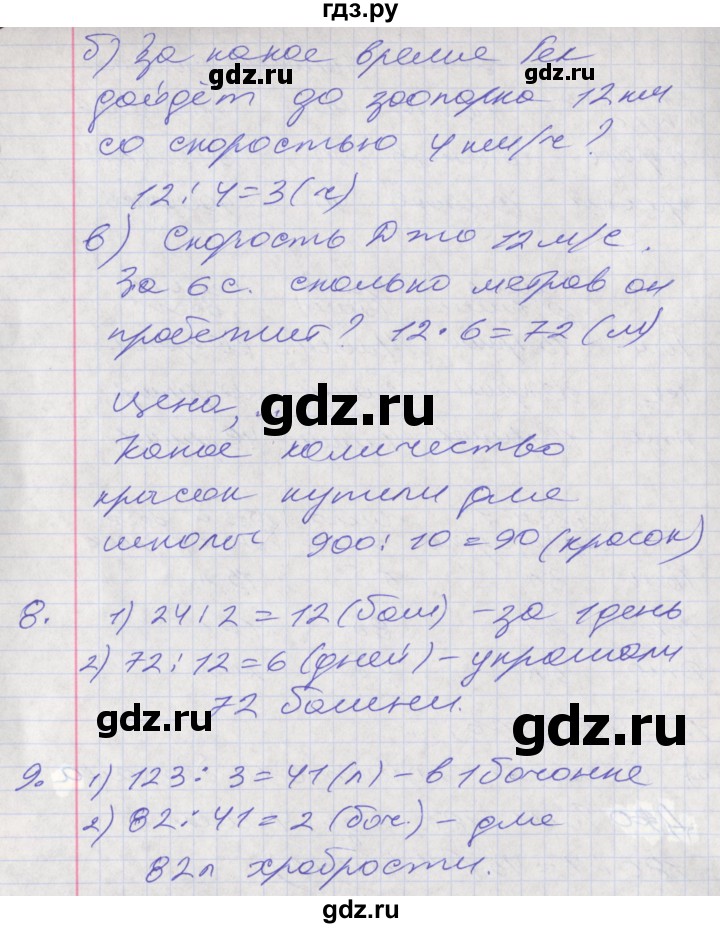 гдз.ру
б) За какое время Гек
gdz.ru gdz.ru
дойдёт до зоопарка 12 км
со скоростью 4 км/ч?
12 : 4 = 3 (ч)
в) Скорость Джо 12 м/с.
За 6 с. сколько метров он
пробежит? 12 • 6 = 72 (м)
gdz.ru
Цена, ...
Какое количество
красок купили для
школы 900 : 10 = 90 (красок)
8. 1) 24 : 2 = 12 (баш) – за 1 день
2) 72 : 12 = 6 (дней) – украшали
72 башни.
gdz.ru gdz.ru
9. 1) 123 : 3 = 41 (л) – в 1 бочонке
2) 82 : 41 = 2 (боч.) – для
82 л храбрости.
gdz.ru